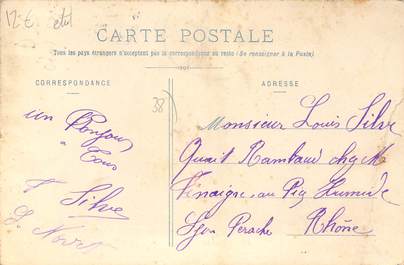 12 €
38
CARTE POSTALE
Tous les pays étrangers n'acceptent pas la correspondance au recto (Se renseigner à la Poste)
CORRESPONDANCE
un Bonjour
a Tous
F Silve
ADRESSE
Monsieur Louis Silve
Quai Rambaud chez Mr
Vinaigre, au Pig Humide
Lyon Perache Rhône